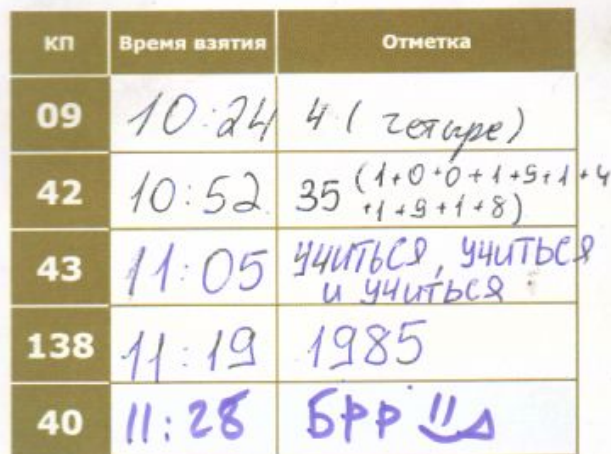 КП Время взятия Отметка
09 10:24 4 (четыре)
42 10:52 35 (1+0+0+1+9+1+4
+1+9+1+8)
43 11:05 учиться, учиться
и учиться
138 11:19 1985
40 11:28 БРР